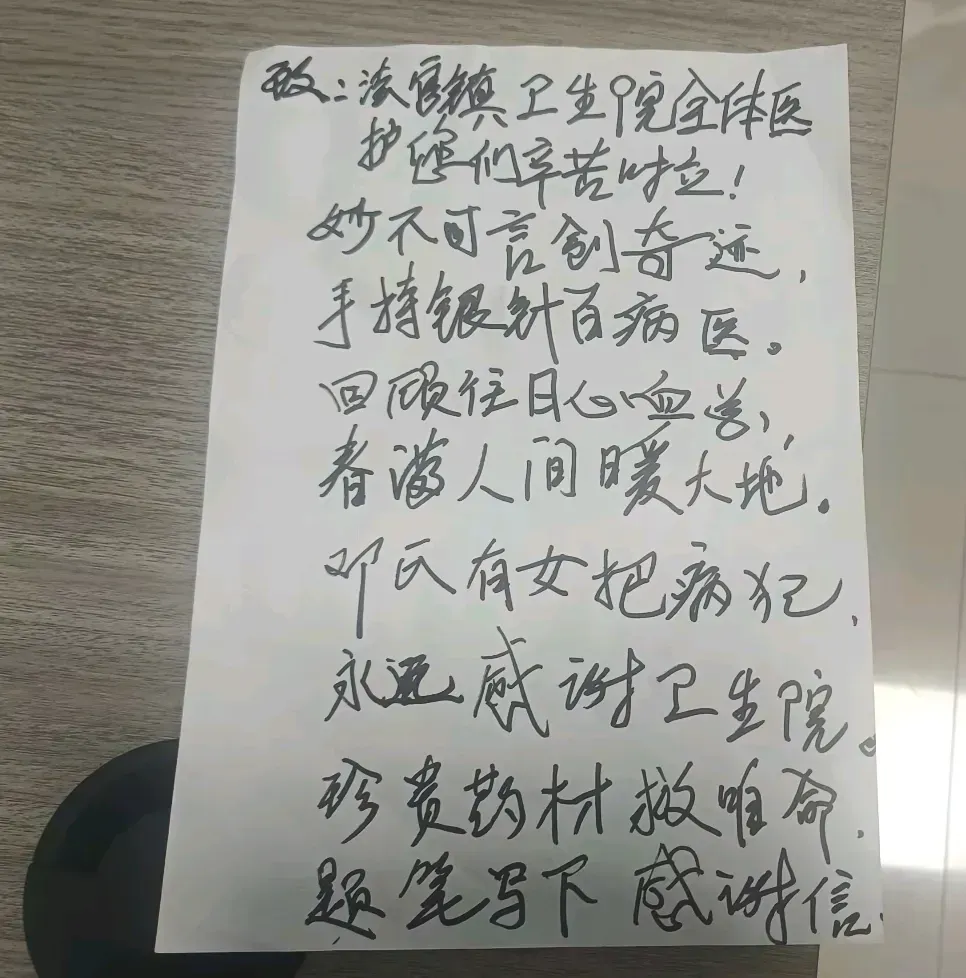 致:法官镇卫生院全体医
护您们辛苦啦!
妙不可言创奇迹,
手持银针百病医。
回顾往日心血送,
春满人间暖大地。
邓氏有女把病犯,
永远感谢卫生院。
珍贵药材救唯命,
题笔写下感谢信.